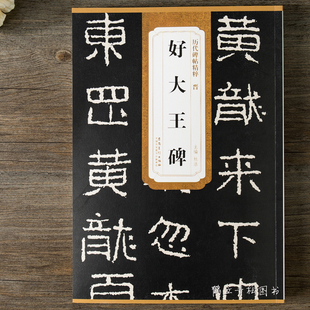 历代碑帖精粹 晋
好大王碑
黄龍来下
忽本
東罡黄龍
图书